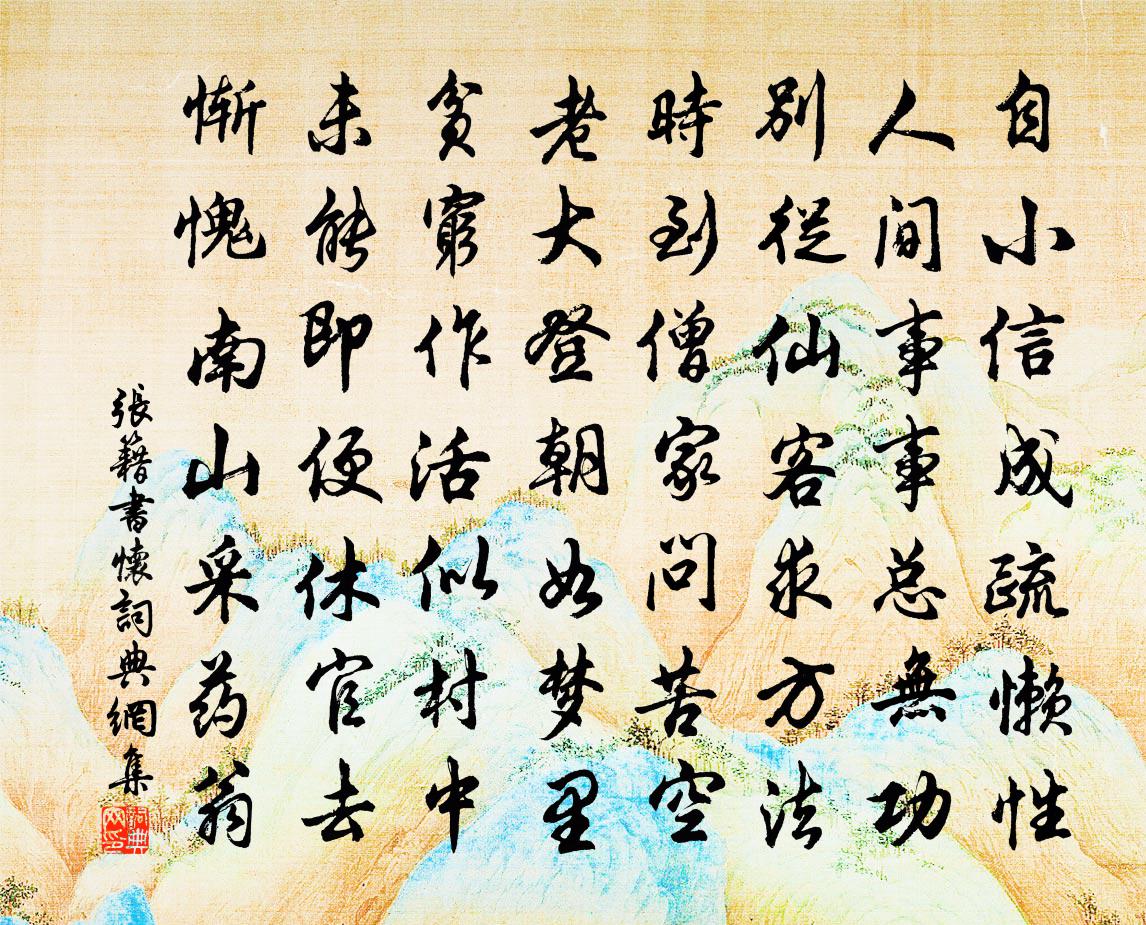 自小信成疏懒性
人间事事总無功
别從仙客求方法
時到僧家问苦空
老大登朝如梦里
貧窮作活似村中
未能即便休官去
惭愧南山采药翁
張籍書懷詞典網集
詞典网印